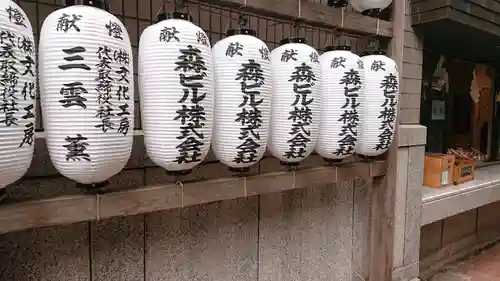 燈
(株)文化工房
代表取締役社長
献燈
(株)文化工房
代表取締役社長
三雲 薫
献燈
森ビル株式会社
献燈
森ビル株式会社
献燈
森ビル株式会社
献燈
森ビル株式会社
献燈
森ビル株式会社